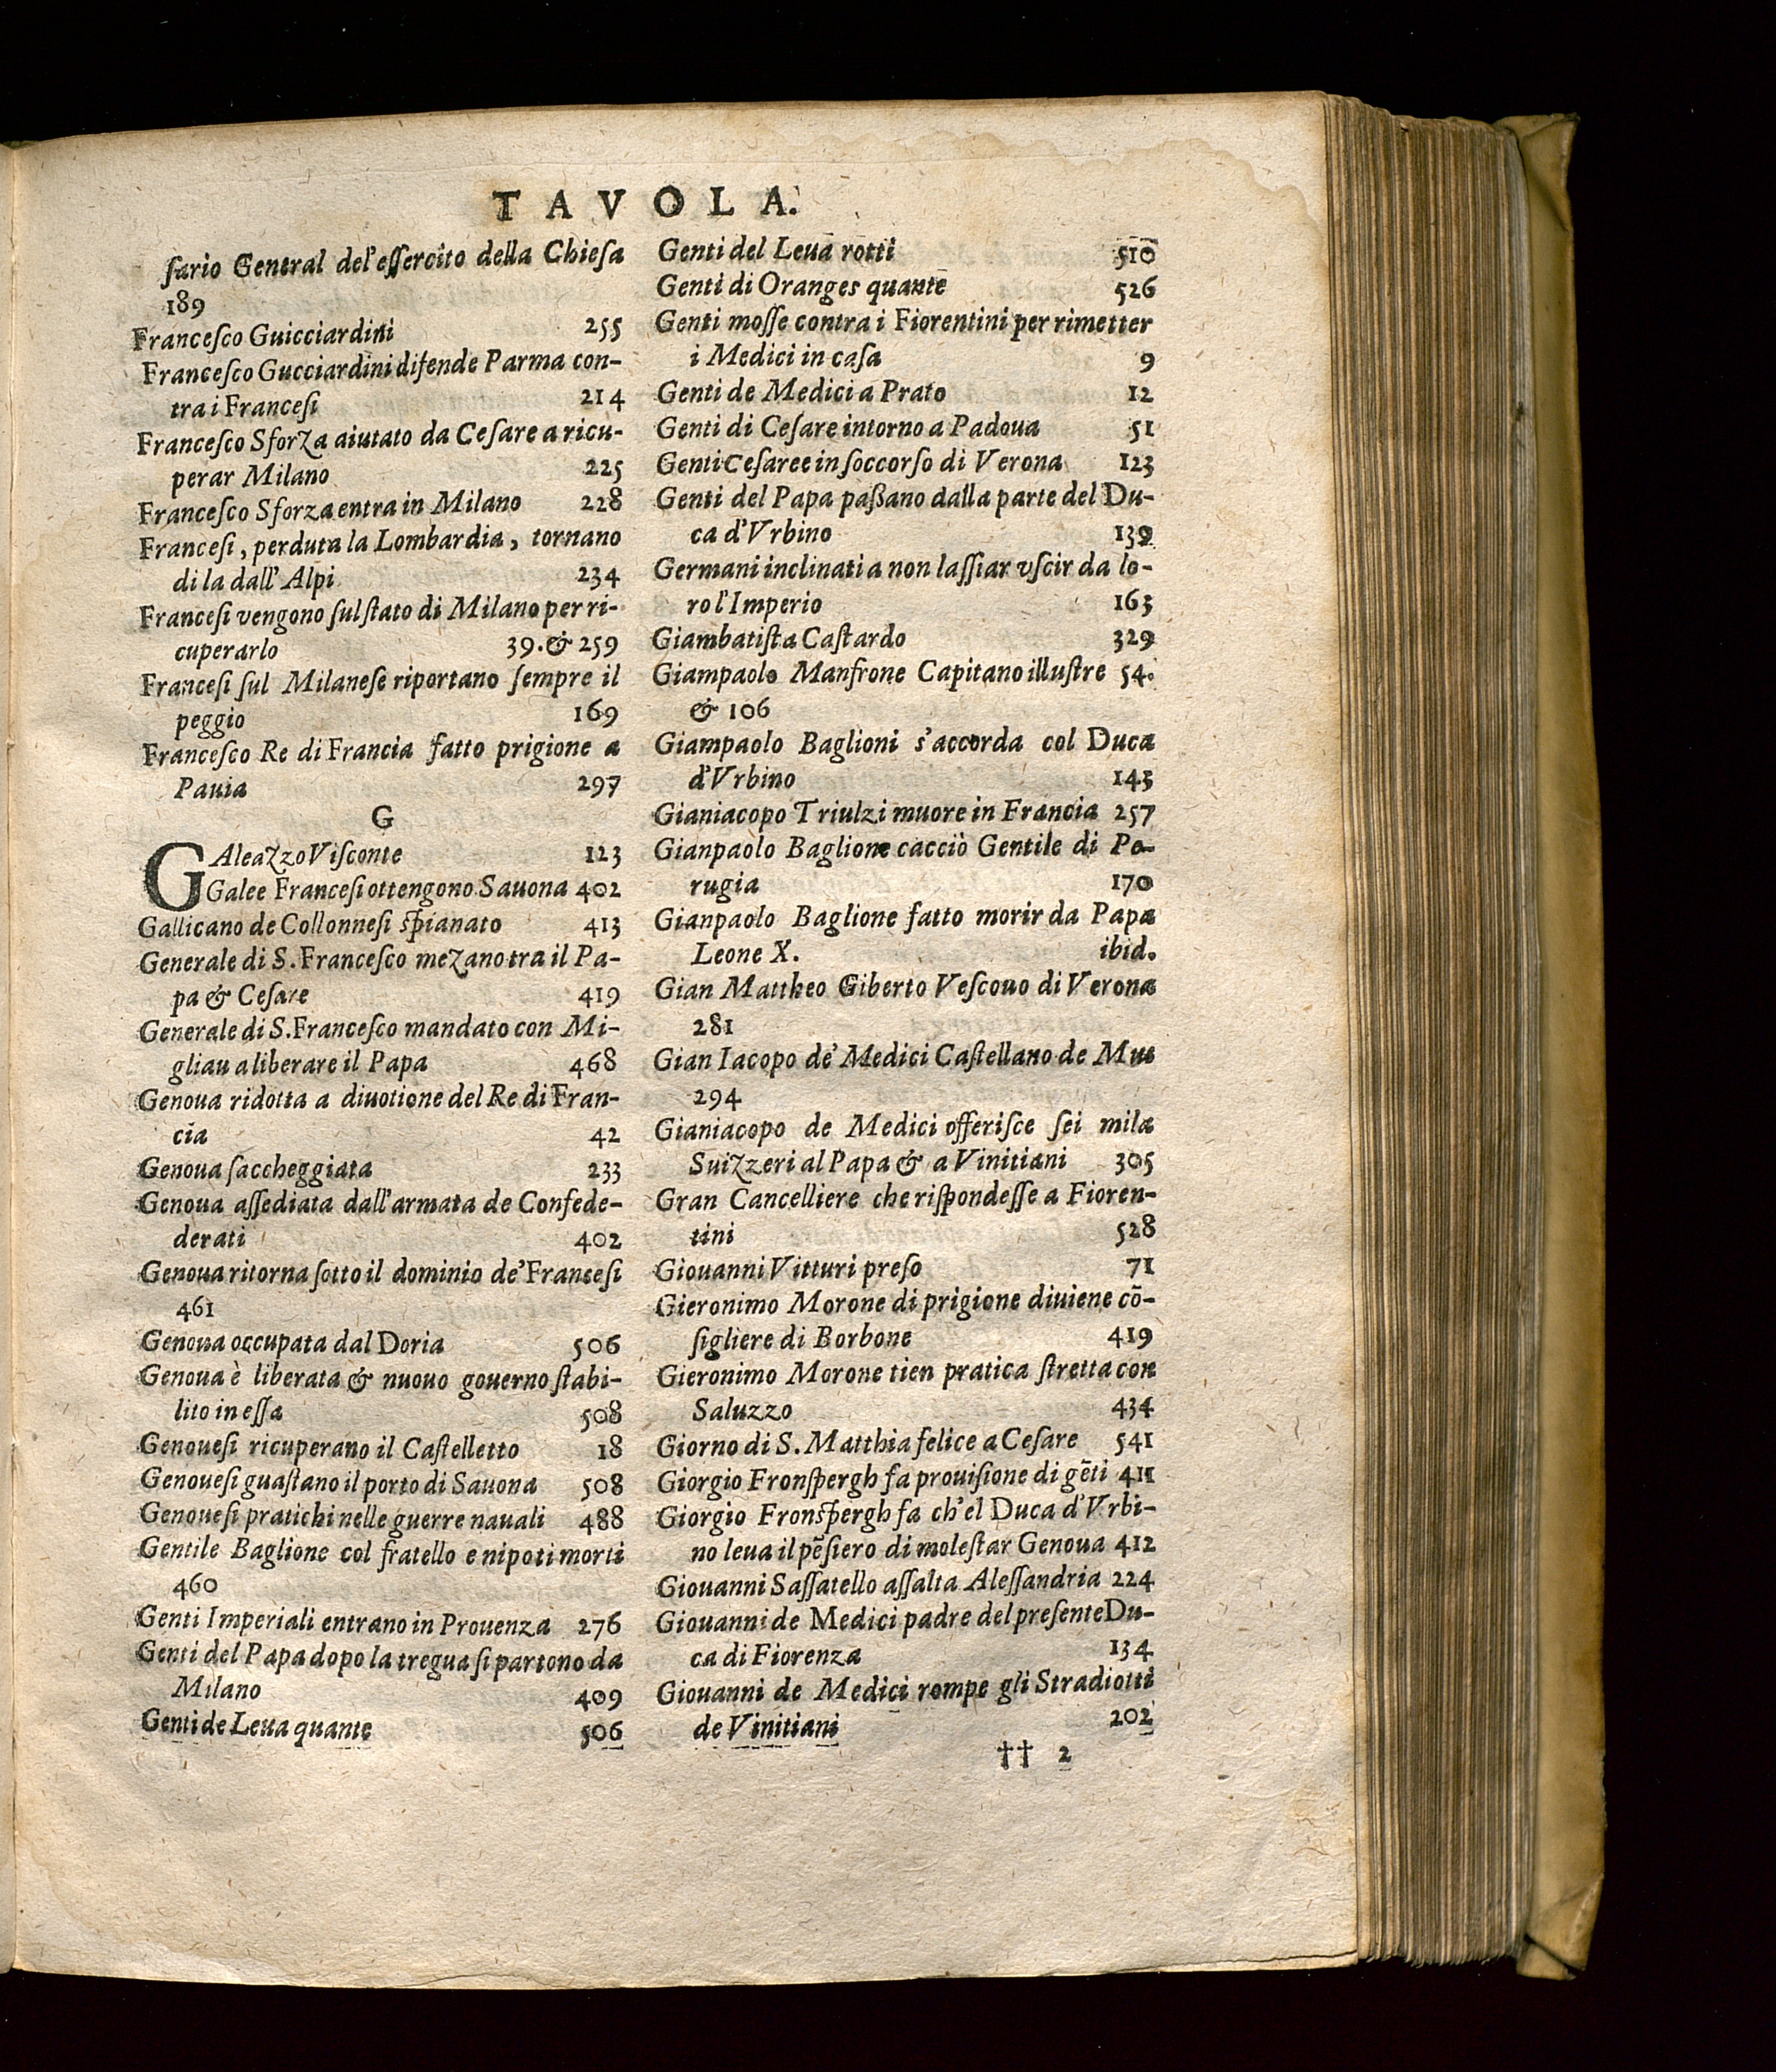 TAVOLA.
ſario General del'eſſercito della Chieſa
189
Franceſco Guicciardini 255
Franceſco Gucciardini difende Parma con-
tra i Franceſi 214
Franceſco Sforza aiutato da Ceſare a ricu-
perar Milano 225
Franceſco Sforza entra in Milano 228
Franceſi, perduta la Lombardia, tornano
di la dall'Alpi 234
Franceſi vengono ſul ſtato di Milano per ri-
cuperarlo 39. & 259
Franceſi ſul Milaneſe riportano ſempre il
peggio 169
Franceſco Re di Francia fatto prigione a
Pauia 297
G
GAleazzo Viſconte 123
Galee Franceſi ottengono Sauona 402
Gallicano de Collonneſi ſpianato 413
Generale di S. Franceſco mezano tra il Pa-
pa & Ceſare 419
Generale di S. Franceſco mandato con Mi-
gliau a liberare il Papa 468
Genoua ridotta a diuotione del Re di Fran-
cia 42
Genoua ſaccheggiata 233
Genoua aſſediata dall'armata de Confede-
derati 402
Genoua ritorna ſotto il dominio de' Franceſi
461
Genoua occupata dal Doria 506
Genoua è liberata & nuouo gouerno ſtabi-
lito in eſſa 508
Genoueſi ricuperano il Caſtelletto 18
Genoueſi guaſtano il porto di Sauona 508
Genoueſi pratichi nelle guerre nauali 488
Gentile Baglione col fratello e nipoti morti
460
Genti Imperiali entrano in Prouenza 276
Genti del Papa dopo la tregua ſi partono da
Milano 409
Genti de Leua quante 506
Genti del Leua rotti 510
Genti di Oranges quante 526
Genti moſſe contra i Fiorentini per rimetter
i Medici in caſa 9
Genti de Medici a Prato 12
Genti di Ceſare intorno a Padoua 51
Genti Ceſaree in ſoccorſo di Verona 123
Genti del Papa paßano dalla parte del Du-
ca d'Vrbino 139
Germani inclinati a non laſſiar vſcir da lo-
ro l'Imperio 163
Giambatiſta Caſtardo 329
Giampaolo Manfrone Capitano illuſtre 54.
& 106
Giampaolo Baglioni s'accorda col Duca
d'Vrbino 143
Gianiacopo Triulzi muore in Francia 257
Gianpaolo Baglione cacciò Gentile di Pe-
rugia 170
Gianpaolo Baglione fatto morir da Papa
Leone X. ibid.
Gian Mattheo Giberto Veſcouo di Verona
281
Gian Iacopo de' Medici Caſtellano de Mus
294
Gianiacopo de Medici offeriſce ſei mila
Suizzeri al Papa & a Vinitiani 305
Gran Cancelliere che riſpondeſſe a Fioren-
tini 528
Giouanni Vitturi preſo 71
Gieronimo Morone di prigione diuiene cõ-
ſigliere di Borbone 419
Gieronimo Morone tien pratica ſtretta con
Saluzzo 434
Giorno di S. Matthia felice a Ceſare 541
Giorgio Fronſpergh fa prouiſione di gẽti 411
Giorgio Fronſpergh fa ch'el Duca d'Vrbi-
no leua il pẽſiero di moleſtar Genoua 412
Giouanni Saſſatello aſſalta Aleſſandria 224
Giouanni de Medici padre del preſente Du-
ca di Fiorenza 134
Giouanni de Medici rompe gli Stradiotti
de Vinitiani 202
†† 2